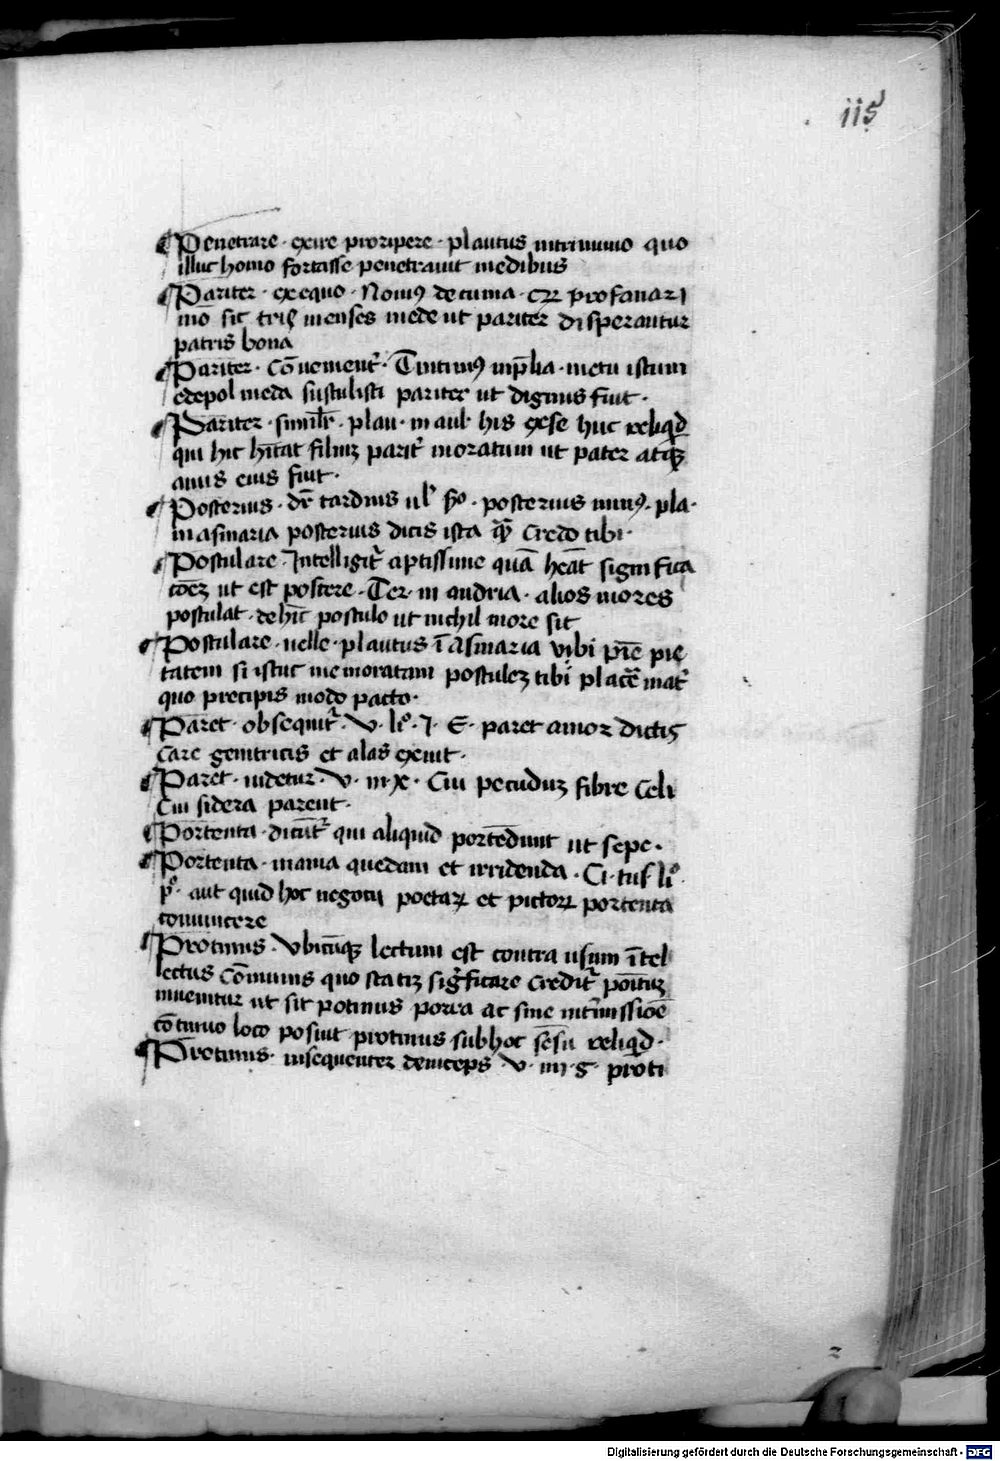 115
Penetrare · exire proripere · plautus intrinumo quo
illuc homo fortasse penetravit inedibus
Pariter · exequo · Noniꝰ decuma · cur profanari
mō sit triꝰ menses inede ut pariter disperantur
patris bona
Pariter · Cōuenienṫ · Tintiniꝰ inp̄lia · metu istum
edepol meda sustulisti pariter ut dignus fuit ·
Pariter · similr̄ · plau · in aul· his esse huc reliqd
qui hic hītat filiuꝫ parit᷑ moratum ut pater atqꝫ
auus eius fuit ·
Posterius · dr̄ tardius ul' · posterius miuꝰ · pla·
in asinaria posterius dicis ista credo tibi ·
Postulare · Intelligit᷑ aptissime quā heāt significa
cōeꝫ ut est poscere · Ter· in andria · alios mores
postulat · dehīc postulo ut nichil more sit
Postulare · uelle · plautus ī Asinaria vibi pīe pie
tatem si istuc me moratam postuleꝫ tibi placēe mat᷑
quo precipis modo pacto ·
Paret · obsequit᷑ · V · liº · I · E · paret amor dictis
care genitricis et alas exuit ·
Paret · uidetur · V · in · x · Cui pecuduꝫ fibre Celi
Cui sidera parent ·
Portenta · dicūt᷑ qui aliquid portēdunt ut sepe ·
Portenta · mania quedam et irridenda · Ci · tus' liº ·
pº · aut quid hoc negotii poetaꝝ et pictoꝝ portenta
conuincere
Protinus · Vbicūqꝫ lectum est contra usum ītel
lectus Cōmunis quo statiꝫ sigficare credit᷑ poītuꝫ
inuenitur ut sit potinus porra ac sine int᷑missiōe
cōtinuo loco posuit protinus sub hoc sēsu reliqd ·
Protinus · insequenter deinceps · V · iiij · g · proti
2
Digitalisierung gefördert durch die Deutsche Forschungsgemeinschaft - DFG